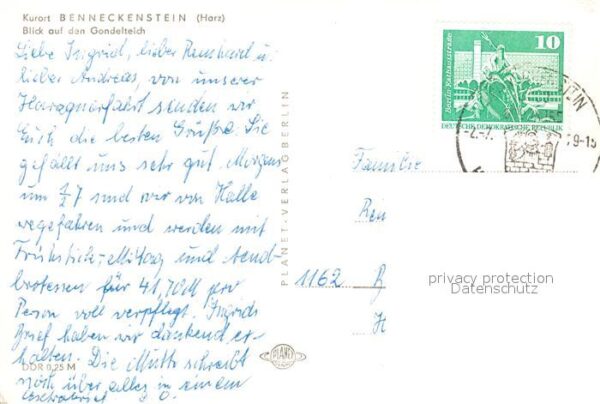 Kurort BENNECKENSTEIN (Harz)
Blick auf den Gondelteich
Liebe Ingrid, lieber Reinhard u.
lieber Andreas, von unserer
senden wir
Euch die besten Grüße. Sie
gefällt uns sehr gut. Morgens
um ½7 sind wir von Halle
weggefahren und werden mit
Frühstück-Mittag und Abend-
brotessen für 41,70M pro
Person voll verpflegt. Ingrids
Brief haben wir dankend er-
halten. Die Mutti schreibt
noch über alles in einem
Extrabrief
DDR 0,25 M
PLANET-VERLAG BERLIN
PLANET
10
Berlin, Rathausstraße
DEUTSCHE DEMOKRATISCHE REPUBLIK
Familie
1162
privacy protection
Datenschutz